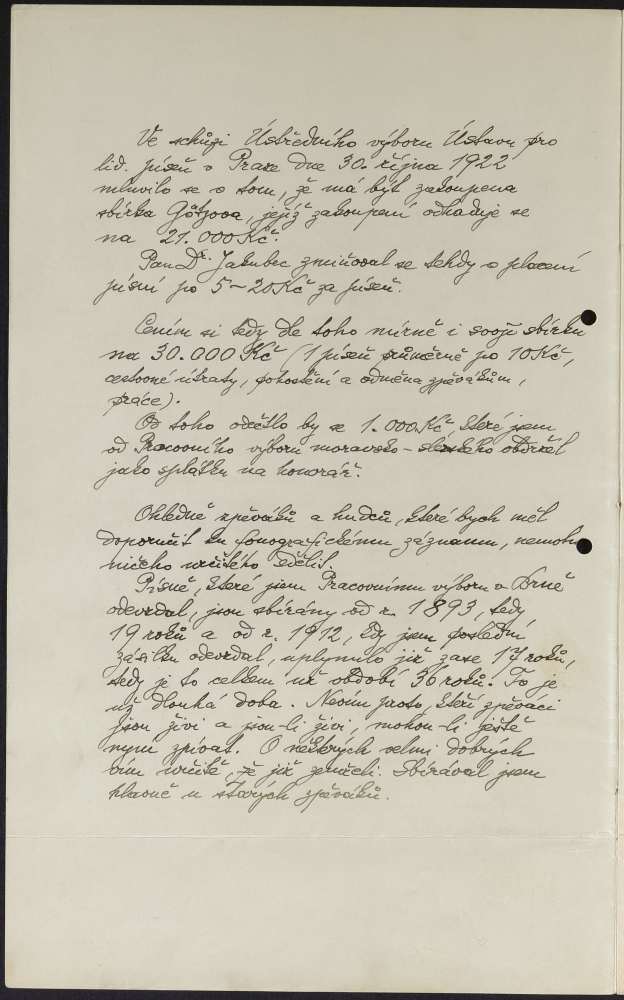 Ve schůzi Ústředního výboru Ústavu pro
lid. píseň v Praze dne 30. října 1922
mluvilo se o tom, že má být zakoupena
sbírka Götzova, jejíž zakoupení odhaduje se
na 21.000 Kč.
Pan Dr. Jakubec zmiňoval se tehdy o placení
písní po 5–20 Kč za píseň.
Cením si tedy dle toho mírně i svoji sbírku
na 30.000 Kč (1 píseň průměrně po 10 Kč,
cestovné útraty, pohoštění a odměna zpěvákům,
práce).
Od toho odečtlo by se 1.000 Kč, které jsem
od Pracovního výboru moravsko-slezského obdržel
jako splátku na honorář.
Ohledně zpěváků a hudců, které bych měl
doporučit ku fonografickému záznamu, nemohu
ničeho určitého sdělit.
Písně, které jsem Pracovnímu výboru v Brně
odevzdal, jsou sbírány od r. 1893, tedy
19 roků a od r. 1912, kdy jsem poslední
zásilku odevzdal, uplynulo již zase 17 roků,
tedy je to celkem už období 36 roků. To je
už dlouhá doba. Nevím proto, kteří zpěváci
jsou živi a jsou-li živi, mohou-li ještě
nyní zpívat. O některých velmi dobrých
vím určitě, že již zemřeli. Sbíral jsem
hlavně u starých zpěváků.